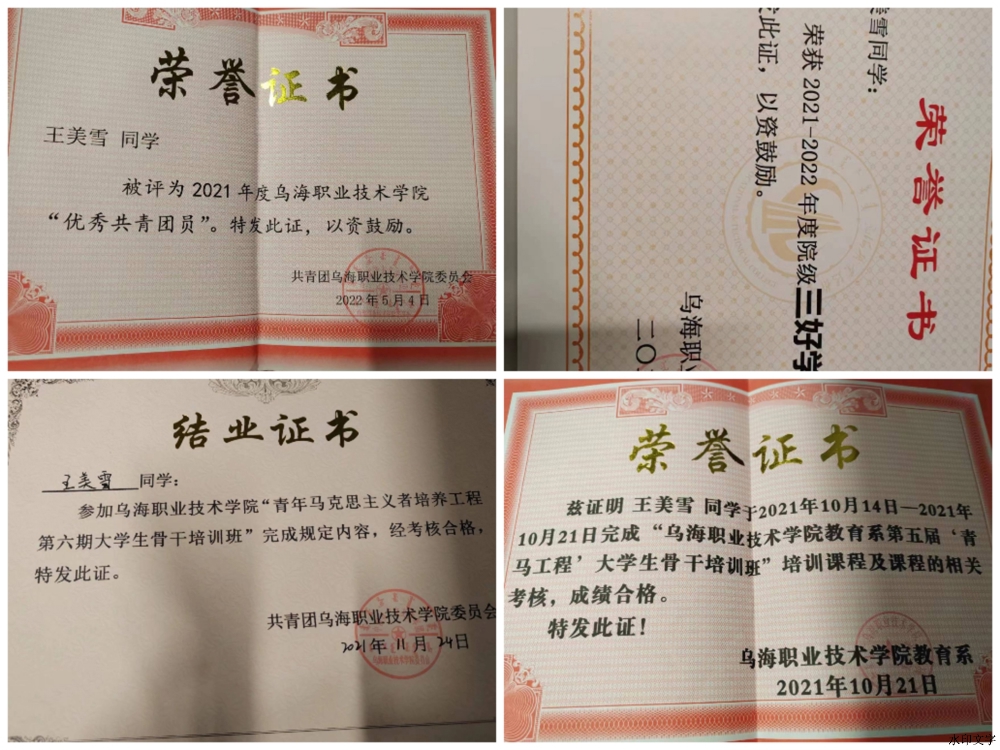 荣誉证书
王美雪 同学
被评为 2021 年度乌海职业技术学院
“优秀共青团员”。特发此证，以资鼓励。
共青团乌海职业技术学院委员会
2022年5月4日
荣誉证书
雪同学：
荣获 2021-2022 年度院级三好学
此证，以资鼓励。
乌海职
二〇
结业证书
王美雪 同学：
参加乌海职业技术学院“青年马克思主义者培养工程
第六期大学生骨干培训班”完成规定内容，经考核合格，
特发此证。
共青团乌海职业技术学院委员会
2021年 11月 24日
荣誉证书
兹证明 王美雪 同学于2021年10月14日—2021年
10月21日完成“乌海职业技术学院教育系第五届‘青
马工程’大学生骨干培训班”培训课程及课程的相关
考核，成绩合格。
特发此证！
乌海职业技术学院教育系
2021年10月21日
水印文字